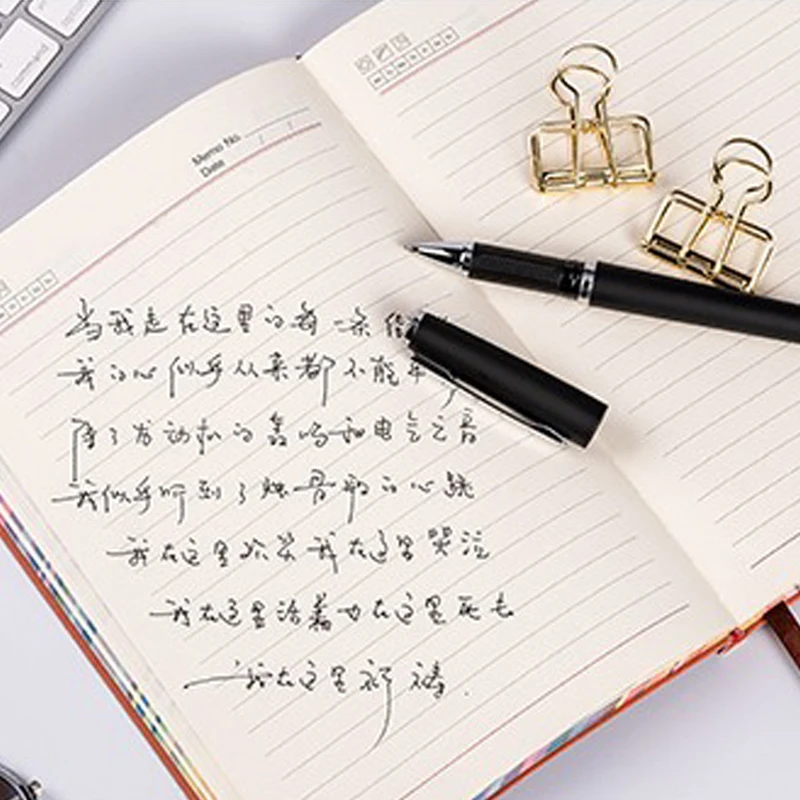 command
Memo No.
Date
当我走在这里的每一条
我的心似乎从来都不能平
除了发动机的轰鸣和电气之音
我似乎听到了烛骨般的心跳
我在这里欢笑 我在这里哭泣
我在这里活着 也在这里死去
我在这里祈祷.